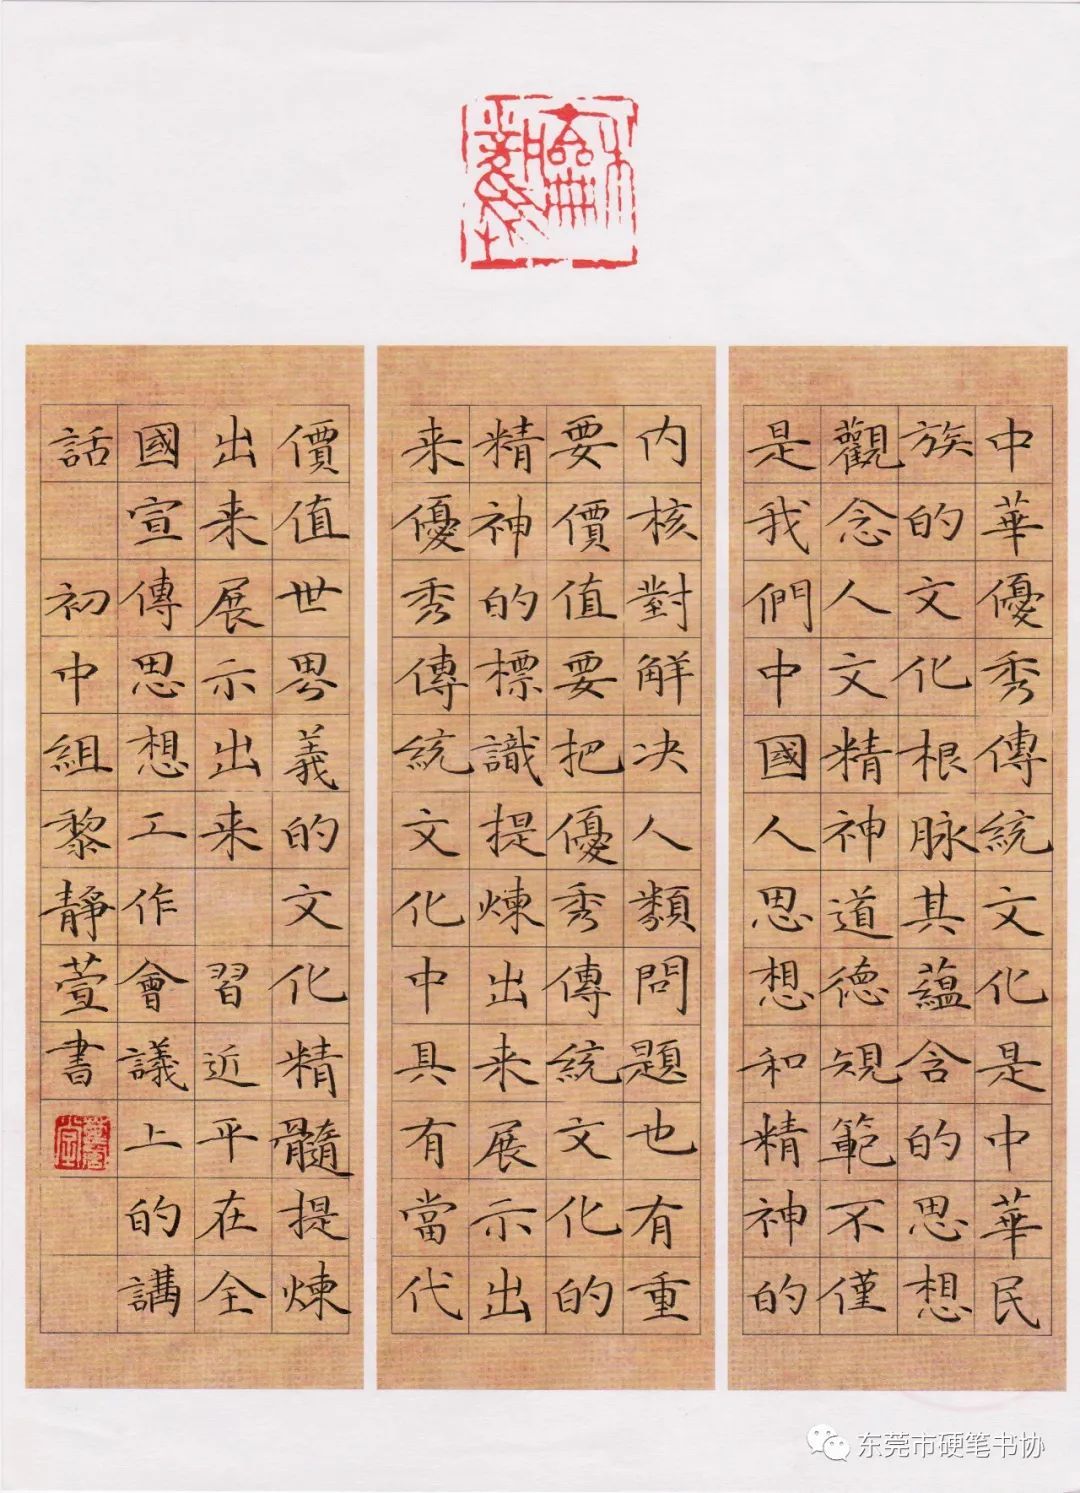 中華優秀傳統文化是中華民
族的文化根脉其蘊含的思想
觀念人文精神道德規範不僅
是我們中國人思想和精神的
内核對解决人類問題也有重
要價值要把優秀傳統文化的
精神的標識提煉出来展示出
来優秀傳統文化中具有當代
價值世界義的文化精髓提煉
出来展示出来 習近平在全
國宣傳思想工作會議上的講
話 初中組黎靜萱書
东莞市硬笔书协